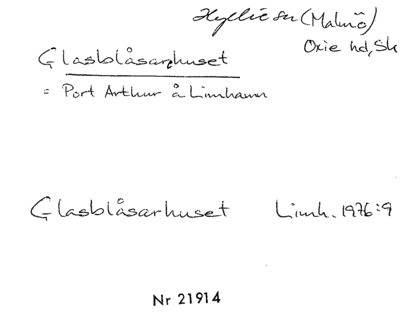 Hyllie sn (Malmö)
Oxie hd, Sk
Glasblåsarhuset
= Port Arthur å Limhamn
Glasblåsarhuset Limh. 1976:9
Nr 21914